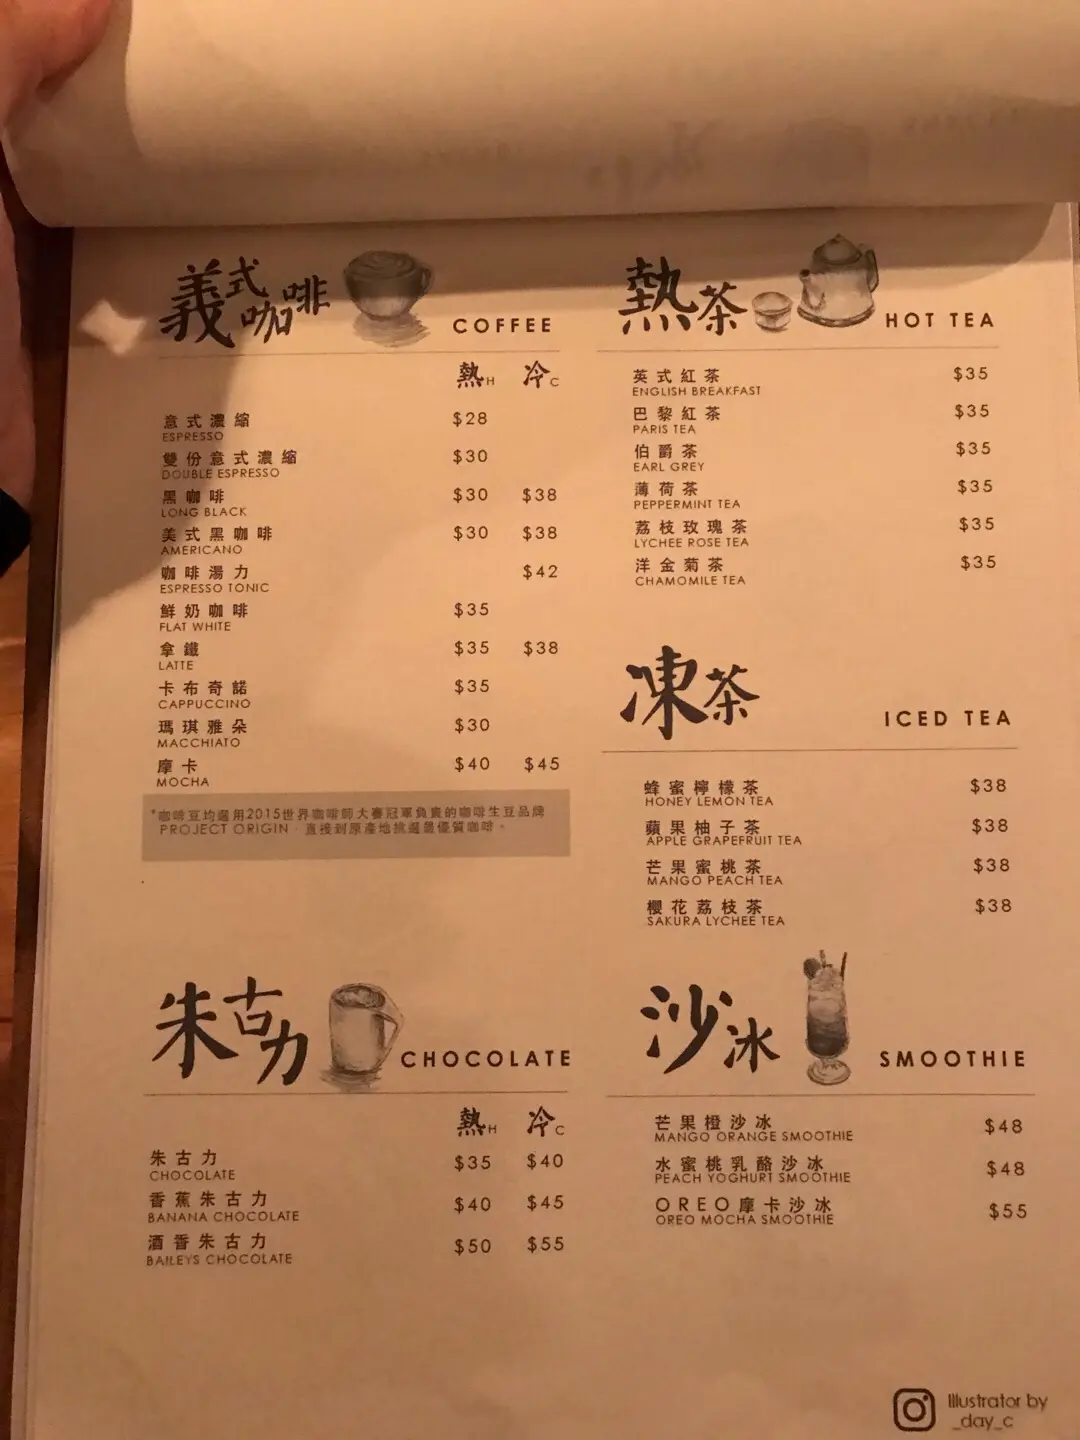 義式咖啡 COFFEE
熱H 冷C
意式濃縮 $28
ESPRESSO
雙份意式濃縮 $30
DOUBLE ESPRESSO
黑咖啡 $30 $38
LONG BLACK
美式黑咖啡 $30 $38
AMERICANO
咖啡湯力 $42
ESPRESSO TONIC
鮮奶咖啡 $35
FLAT WHITE
拿鐵 $35 $38
LATTE
卡布奇諾 $35
CAPPUCCINO
瑪琪雅朵 $30
MACCHIATO
摩卡 $40 $45
MOCHA
*咖啡豆均選用2015世界咖啡師大賽冠軍負責的咖啡生豆品牌
PROJECT ORIGIN，直接到原產地挑選最優質咖啡。
朱古力 CHOCOLATE
熱H 冷C
朱古力 $35 $40
CHOCOLATE
香蕉朱古力 $40 $45
BANANA CHOCOLATE
酒香朱古力 $50 $55
BAILEYS CHOCOLATE
熱茶 HOT TEA
英式紅茶 $35
ENGLISH BREAKFAST
巴黎紅茶 $35
PARIS TEA
伯爵茶 $35
EARL GREY
薄荷茶 $35
PEPPERMINT TEA
荔枝玫瑰茶 $35
LYCHEE ROSE TEA
洋金菊茶 $35
CHAMOMILE TEA
凍茶 ICED TEA
蜂蜜檸檬茶 $38
HONEY LEMON TEA
蘋果柚子茶 $38
APPLE GRAPEFRUIT TEA
芒果蜜桃茶 $38
MANGO PEACH TEA
櫻花荔枝茶 $38
SAKURA LYCHEE TEA
沙冰 SMOOTHIE
芒果橙沙冰 $48
MANGO ORANGE SMOOTHIE
水蜜桃乳酪沙冰 $48
PEACH YOGHURT SMOOTHIE
OREO摩卡沙冰 $55
OREO MOCHA SMOOTHIE
Illustrator by
_day_c